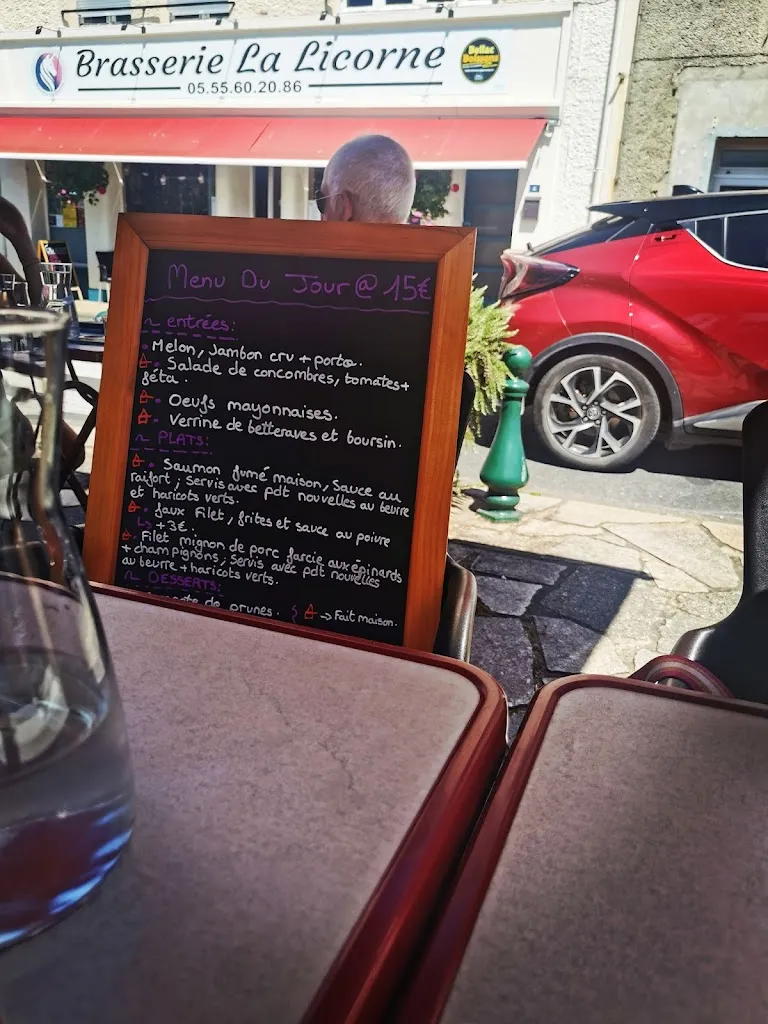 Brasserie La Licorne
05.55.60.20.86
Menu Du Jour @ 15€
~ entrées:
Melon, Jambon cru + porto.
Salade de concombres, tomates +
féta.
Oeufs mayonnaises.
Verrine de betteraves et boursin.
~ PLATS:
Saumon fumé maison, Sauce au
raifort; servis avec pdt nouvelles au beurre
et haricots verts.
Faux Filet, frites et sauce au poivre
↳ +3€.
Filet mignon de porc farcie aux épinards
+ champignons; servis avec pdt nouvelles
au beurre + haricots verts.
~ DESSERTS:
de prunes. → Fait maison.